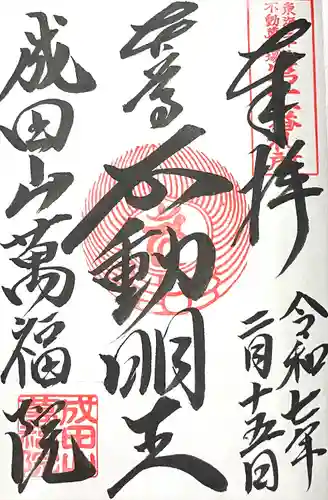 奉拝
令和七年
二月十五日
本尊
不動明王
成田山萬福院
成田山
萬福院